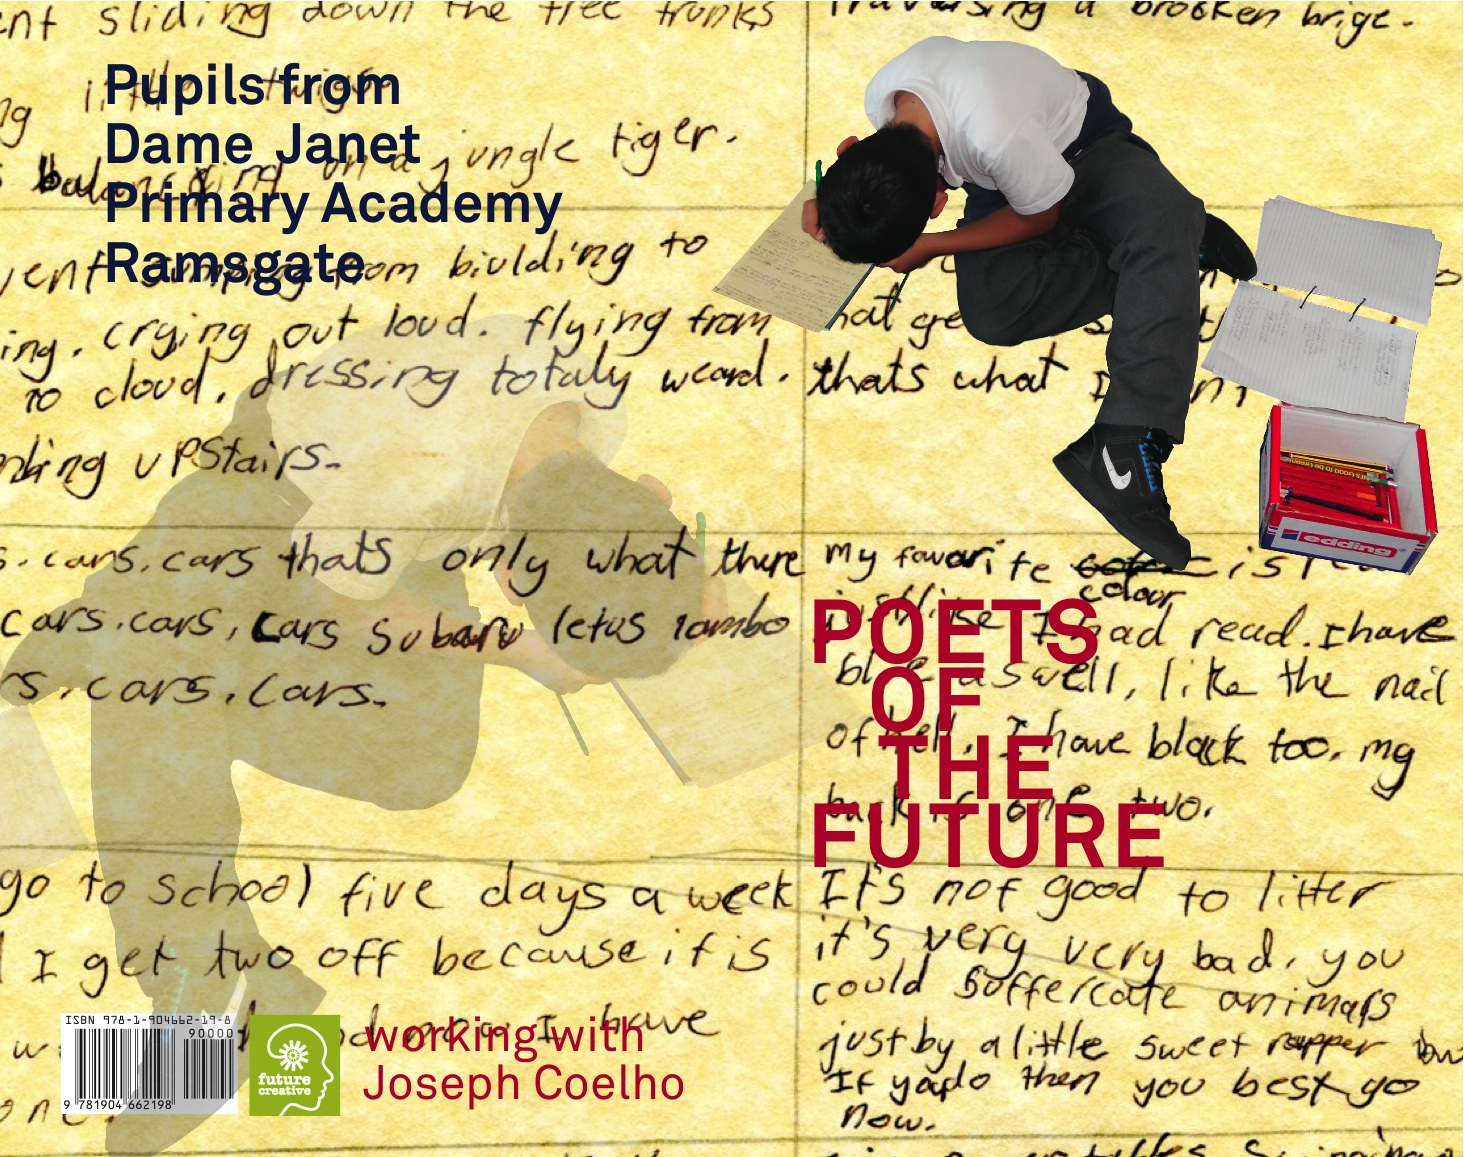 ent sliding down the tree trunks
Pupils from
Dame Janet
Primary Academy
Ramsgate
ng
on a jungle tiger.
vent from biulding to
ing, crying out loud. flying from
to cloud, dressing totaly weard.
upstairs.
s. cars. cars thats only what there
cars. cars, cars subaru letus lambo
rs. cars, cars.
go to school five days a week
I get two off because it is
have
ISBN 978-1-904662-19-8
90000
9 781904 662198
future
creative
working with
Joseph Coelho
traversing a brocken brige.
thats what I
edding
my favorite is
colour
I had read. I have
aswell, like the nail
of hell. I have black too. my
back is one two.
POETS
OF
THE
FUTURE
It's not good to litter
it's very very bad, you
could suffercate animals
just by a little sweet rapper
If yado then you best go
now.